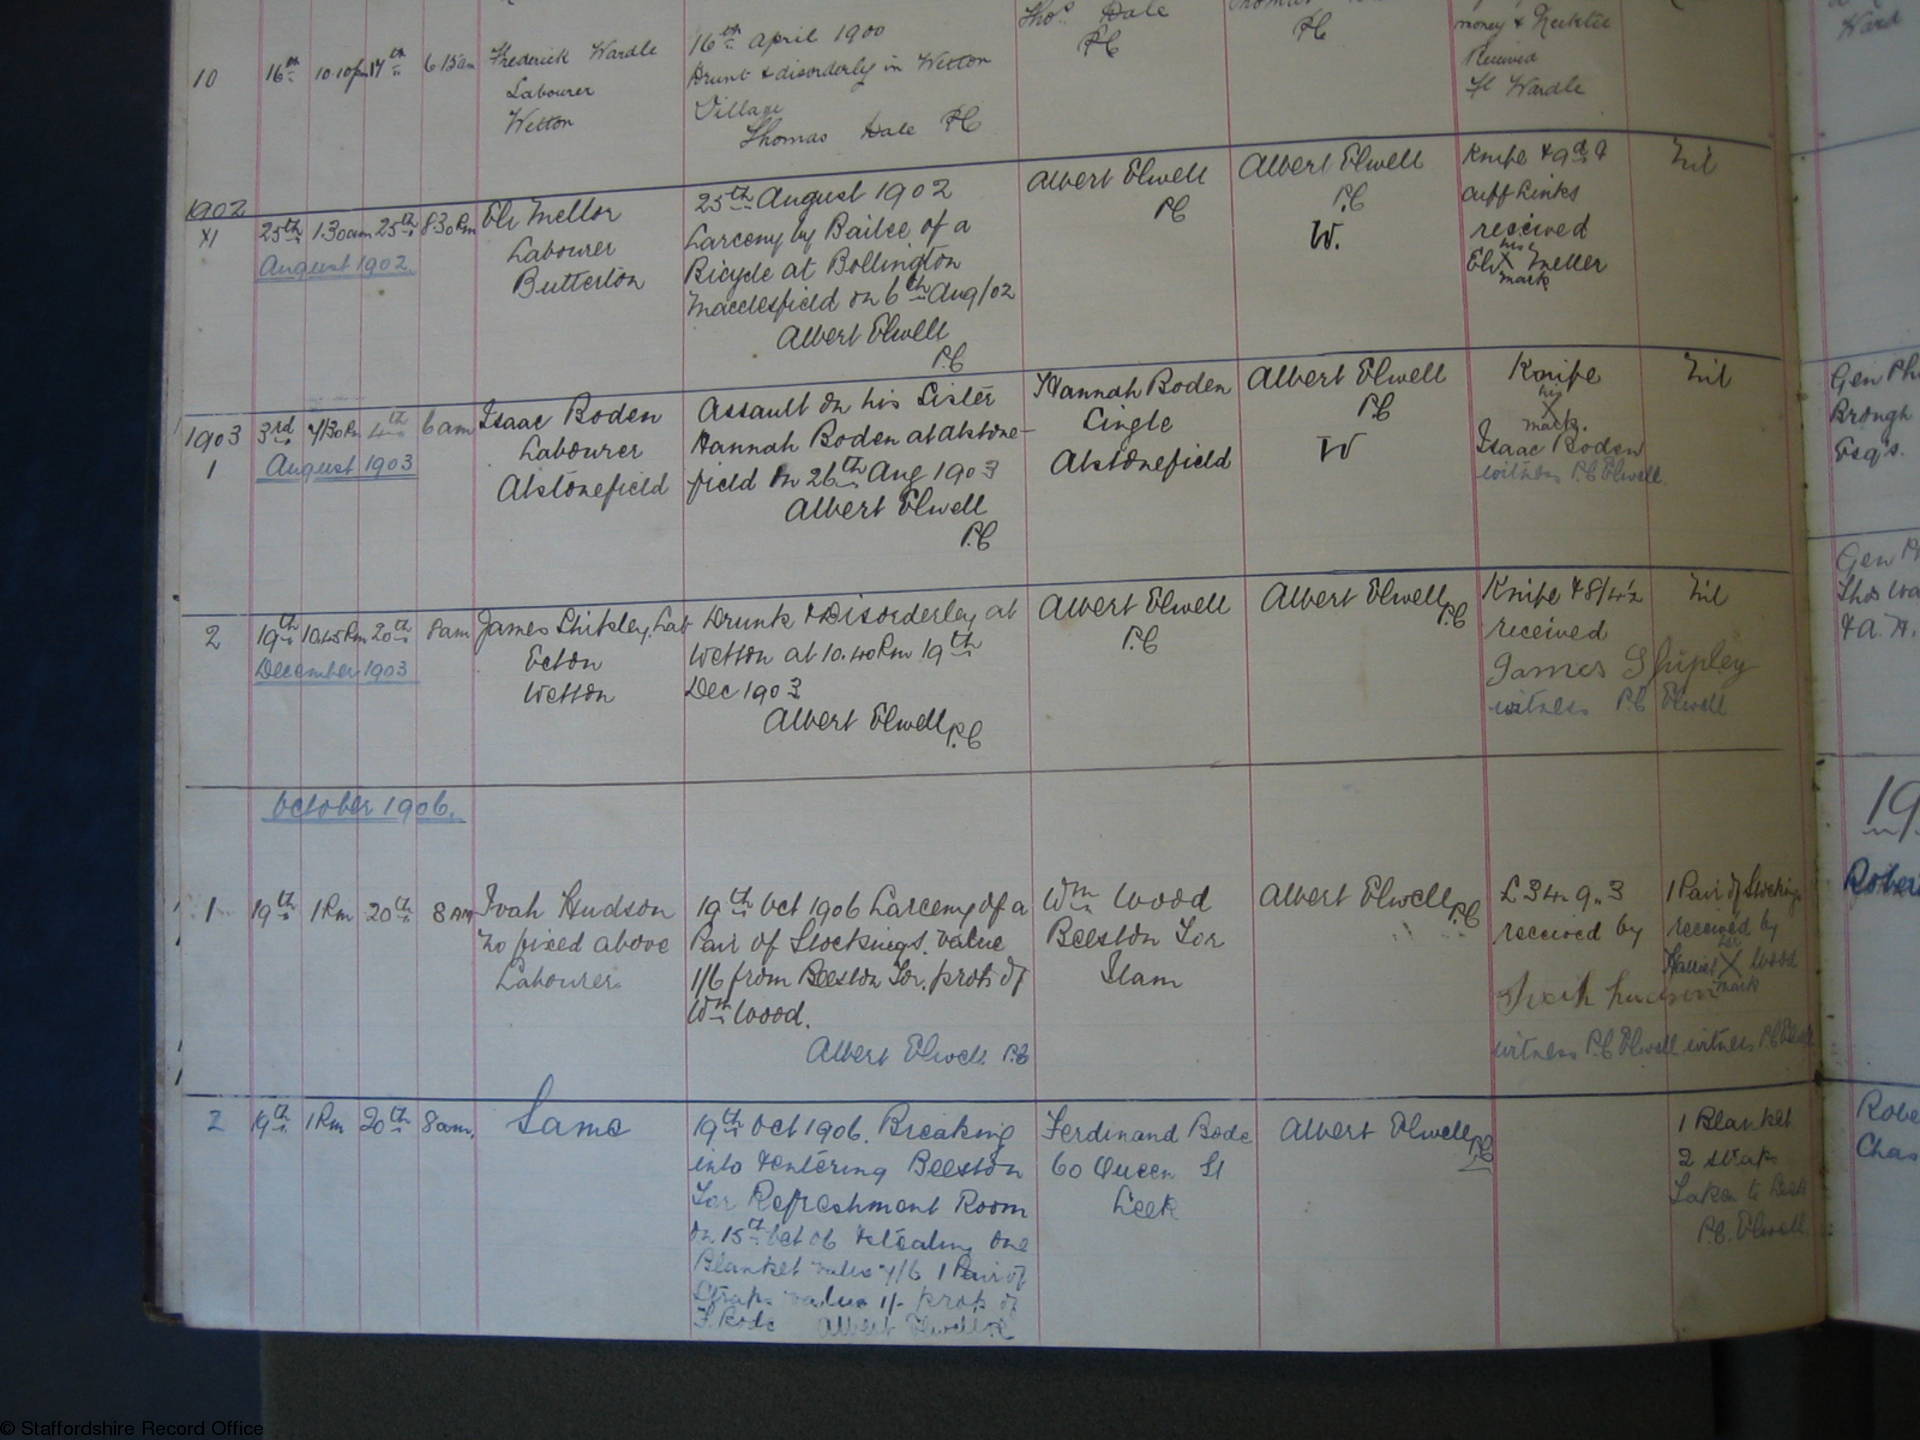 Thos. Dale
PC
PC
money & Necktie
Received
Fk Wardle
Ward
10 16th 10.10pm 17th 6 15am Frederick Wardle
Labourer
Wetton
16th April 1900
Drunk & disorderly in Wetton
Village
Thomas Dale PC
1902
XI 25th 1.30am 25th 8.30Pm Eli Mellor
August 1902
Labourer
Butterton
25th August 1902
Larceny by Bailee of a
Bicycle at Bollington
Macclesfield on 6th Aug/02
Albert Elwell
P.C
Albert Elwell
PC
Albert Elwell
P.C
W.
Knife & 9d &
cuff Links
received
his
Eli X Meller
mark
Nil
1903
1
3rd 7/30Pm 4th 6am Isaac Boden
August 1903
Labourer
Alstonefield
Assault on his Sister
Hannah Boden at alstone-
field on 26th Aug 1903
Albert Elwell
P.C
Hannah Boden
Single
Alstonefield
Albert Elwell
P.C
W
Knife
his
X
mark.
Isaac Boden
witness P.C Elwell
Nil
Gen Ph
Brough
Esqs.
2 19th 10.45Pm 20th 8am James Shipley, Lab
December 1903
Ecton
Wetton
Drunk & Disorderley at
Wetton at 10.40Pm 19th
Dec 1903
Albert Elwell P.C
Albert Elwell
P.C
Albert Elwell P.C
Knife & 8/4½
received
James Shipley
witness P.C Elwell
Nil
Gen P
Thos Wa
& A. H.
October 1906.
1 19th 1Pm 20th 8AM Ivah Hudson
No fixed above
Labourer
19th Oct 1906 Larceny of a
Pair of Stockings. value
1/6 from Beeston Tor. prop of
Wm Wood.
Albert Elwell P.C
Wm Wood
Beeston Tor
Ilam
Albert Elwell P.C
£34.9.3
received by
hudson
witness P.C Elwell
1 Pair of Stockings
received by
her
Harriet X Wood
mark
witness P.C Elwell
19
Rober
2 19th 1Pm 20th 8am. Same
19th Oct 1906. Breaking
into & entering Beeston
Tor Refreshment Room
on 15th Oct 06 & stealing one
Blanket value 7/6 1 Pair of
Straps value 1/- prop of
F. Bode Albert Elwell P.C
Ferdinand Bode
60 Queen St
Leek
Albert Elwell P.C
1 Blanket
2 straps
Taken to Leek
P.C. Elwell
Robe
Chas
© Staffordshire Record Office